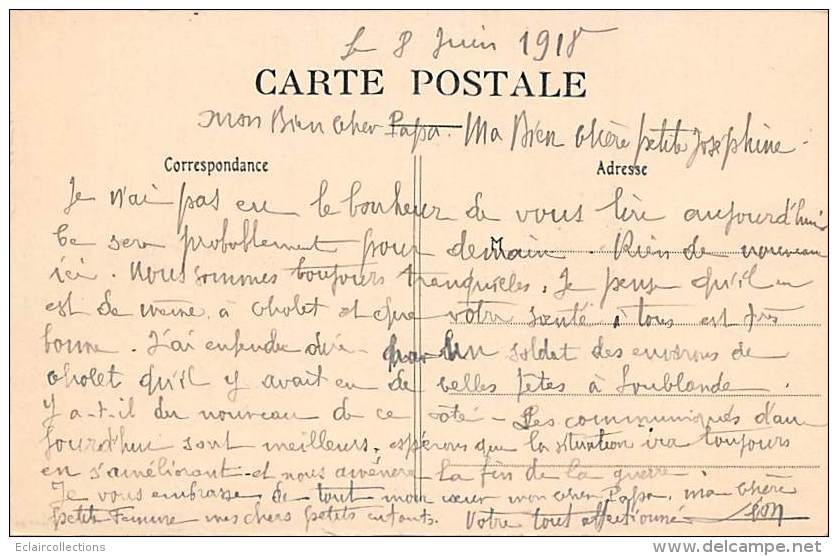 le 8 Juin 1918
CARTE POSTALE
Mon Bien cher Papa. Ma Bien chère petite Josephine.
Correspondance Adresse
Je n'ai pas eu le bonheur de vous lire aujourd'hui
ce sera probablement pour demain. Rien de nouveau
ici. Nous sommes toujours tranquilles. Je pense qu'il en
est de même à Cholet et que votre santé à tous est très
bonne. J'ai entendu dire par un soldat des environs de
Cholet qu'il y avait eu de belles fêtes à Loublande.
Y a-t-il du nouveau de ce côté - Les communiqués d'au
jourd'hui sont meilleurs, espérons que la situation ira toujours
en s'améliorant et nous amènera la fin de la guerre.
Je vous embrasse de tout mon cœur mon cher Papa, ma chère
petite Femme mes chers petits enfants. Votre tout affectionné
Eclaircollections
www.delcampe.net